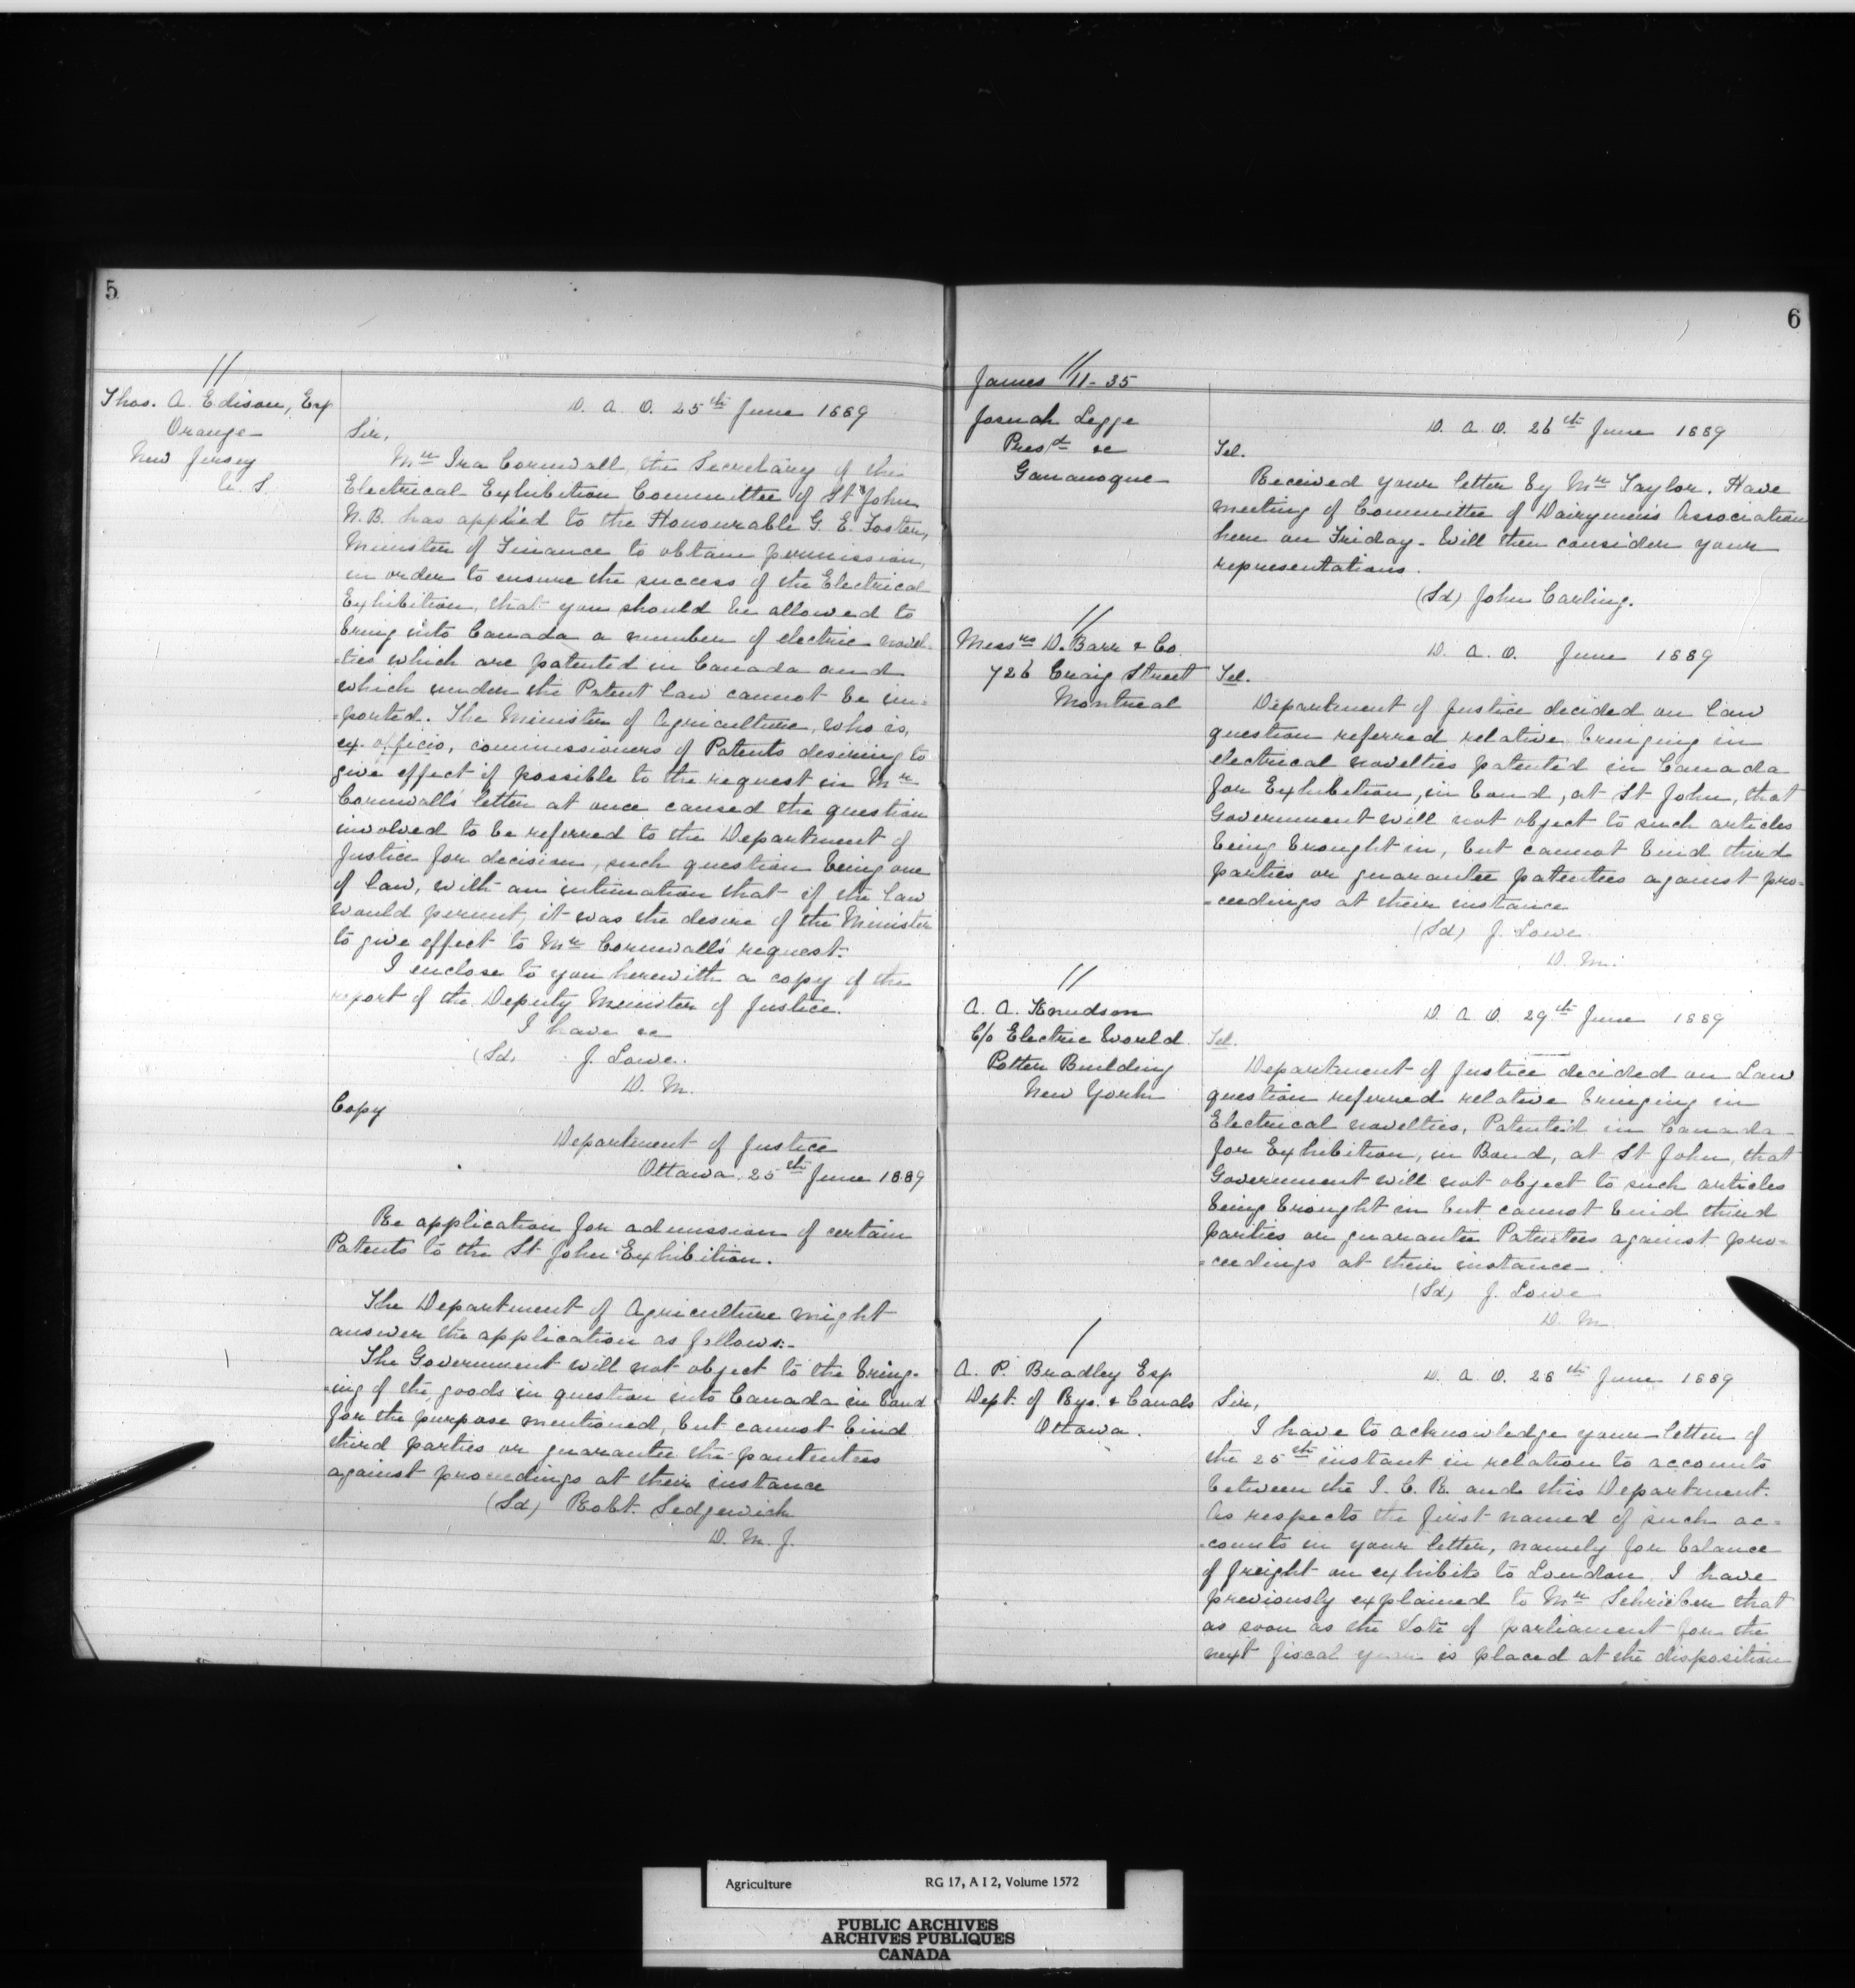 5
//
Thos. A. Edison, Esq
Orange
New Jersey
U. S.
D. A. O. 25th June 1889
Sir,
Mr Ira Cornwall, the Secretary of the
Electrical Exhibition Committee of St John
N. B. has applied to the Honourable G. E. Foster,
Minister of Finance to obtain permission,
in order to ensure the success of the Electrical
Exhibition, that you should be allowed to
bring into Canada a number of electric novel-
-ties which are patented in Canada and
which under the Patent law cannot be im-
-ported. The Minister of Agriculture, who is,
ex-officio, commissioners of Patents desiring to
give effect if possible to the request in Mr
Cornwall's letter at once caused the question
involved to be referred to the Department of
Justice for decision, such question being one
of law, with an intimation that if the law
would permit, it was the desire of the Minister
to give effect to Mr Cornwall's request.
I enclose to you herewith a copy of the
report of the Deputy Minister of Justice.
I have &c
(Sd) J. Lowe.
D. M.
Copy
Department of Justice
Ottawa. 25th June 1889
Re application for admission of certain
Patents to the St John Exhibition.
The Department of Agriculture might
answer the application as follows:-
The Government will not object to the bring-
-ing of the goods in question into Canada in bond
for the purpose mentioned, but cannot bind
third parties or guarantee the pantentees
against proceedings at their instance
(Sd) Robt. Sedgewick
D. M. J.
6
//
James 11-35
Josuah Legge
Presdt &c
Gananoque
D. A. O. 26th June 1889
Tel.
Received your letter by Mr Taylor. Have
meeting of Committee of Dairymen's Association
here on Friday. Will then consider your
representations.
(Sd) John Carling.
//
Messrs D. Barr & Co.
726 Craig Street
Montreal
D. A. O. June 1889
Tel.
Department of Justice decided on law
question referred relative bringing in
electrical novelties patented in Canada
for Exhibition, in bond, at St John, that
Government will not object to such articles
being brought in, but cannot bind third
parties or guarantee patentees against pro-
-ceedings at their instance
(Sd) J. Lowe
D. M.
//
A. A. Knudson
C/o Electric World
Potter Building
New York
D. A. O. 29th June 1889
Tel.
Department of Justice decided on Law
question referred relative bringing in
Electrical novelties, Patented in Canada
for Exhibition, in Bond, at St John, that
Government will not object to such articles
being brought in but cannot bind third
parties or guarantee Patentees against pro-
-ceedings at their instance.
(Sd) J. Lowe
D. M.
/
A. P. Bradley Esq
Dept. of Rys. & Canals
Ottawa.
D. A. O. 28th June 1889
Sir,
I have to acknowledge your letter of
the 25th instant in relation to accounts
between the I. C. R. and this Department.
As respects the first named of such ac-
-counts in your letter, namely for balance
of freight on exhibits to London I have
previously explained to Mr Schrieber that
as soon as the Vote of parliament for the
next fiscal year is placed at the disposition
Agriculture RG 17, A I 2, Volume 1572
PUBLIC ARCHIVES
ARCHIVES PUBLIQUES
CANADA